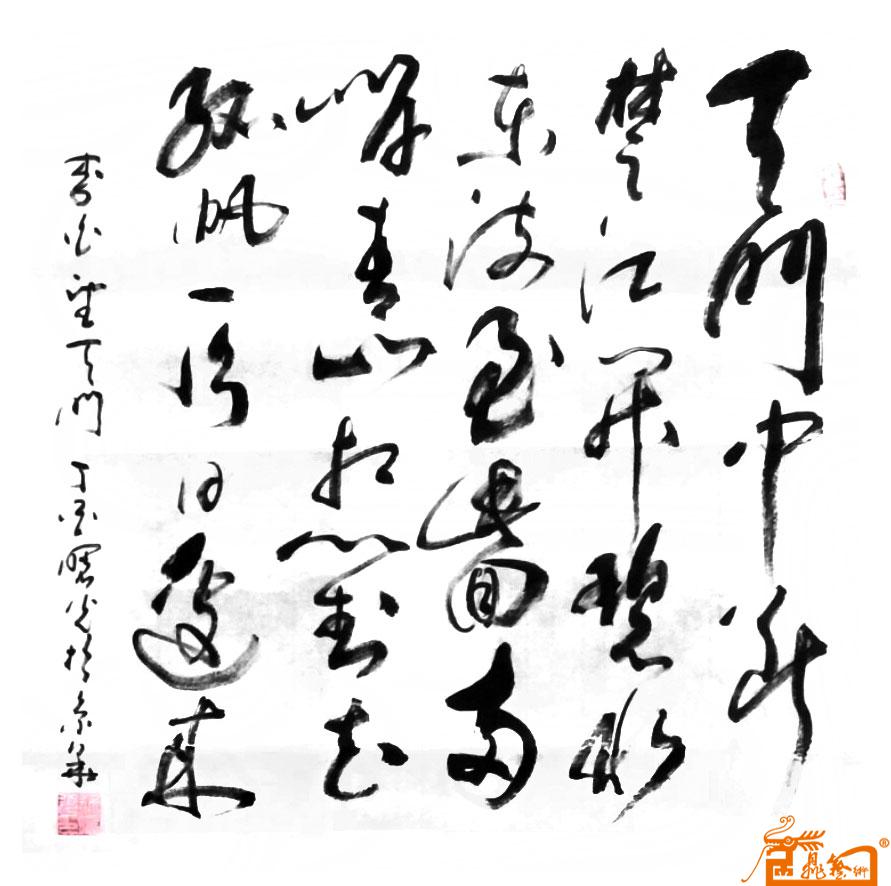 天門中斷
楚江開碧水
東流至此回兩
岸青山相對出
孤帆一片日邊來
李白望天門 丁酉曙光於京華